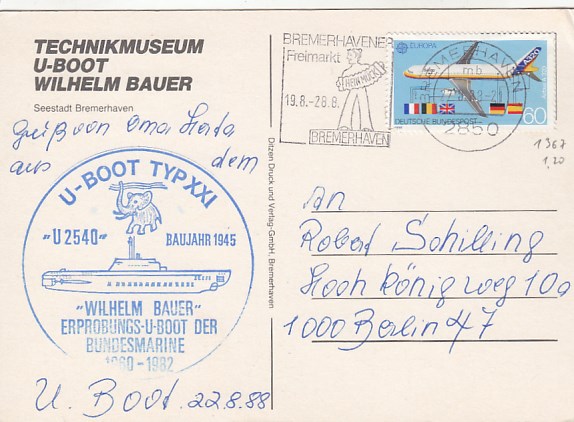 TECHNIKMUSEUM
U-BOOT
WILHELM BAUER
Seestadt Bremerhaven
Gruß von Oma Herta
aus dem
U-BOOT TYP XXI
"U 2540"
BAUJAHR 1945
"WILHELM BAUER"
ERPROBUNGS-U-BOOT DER
BUNDESMARINE
1960-1982
U. Boot 22.8.88
Ditzen Druck und Verlags-GmbH, Bremerhaven
BREMERHAVENER
Freimarkt
19.8.-28.8.
BREMERHAVEN
BREMERHAVEN
mb
2850
EUROPA
A320
60
DEUTSCHE BUNDESPOST
1367
1,20
An
Robert Schilling
Hoch König weg 10a
1000 Berlin 47